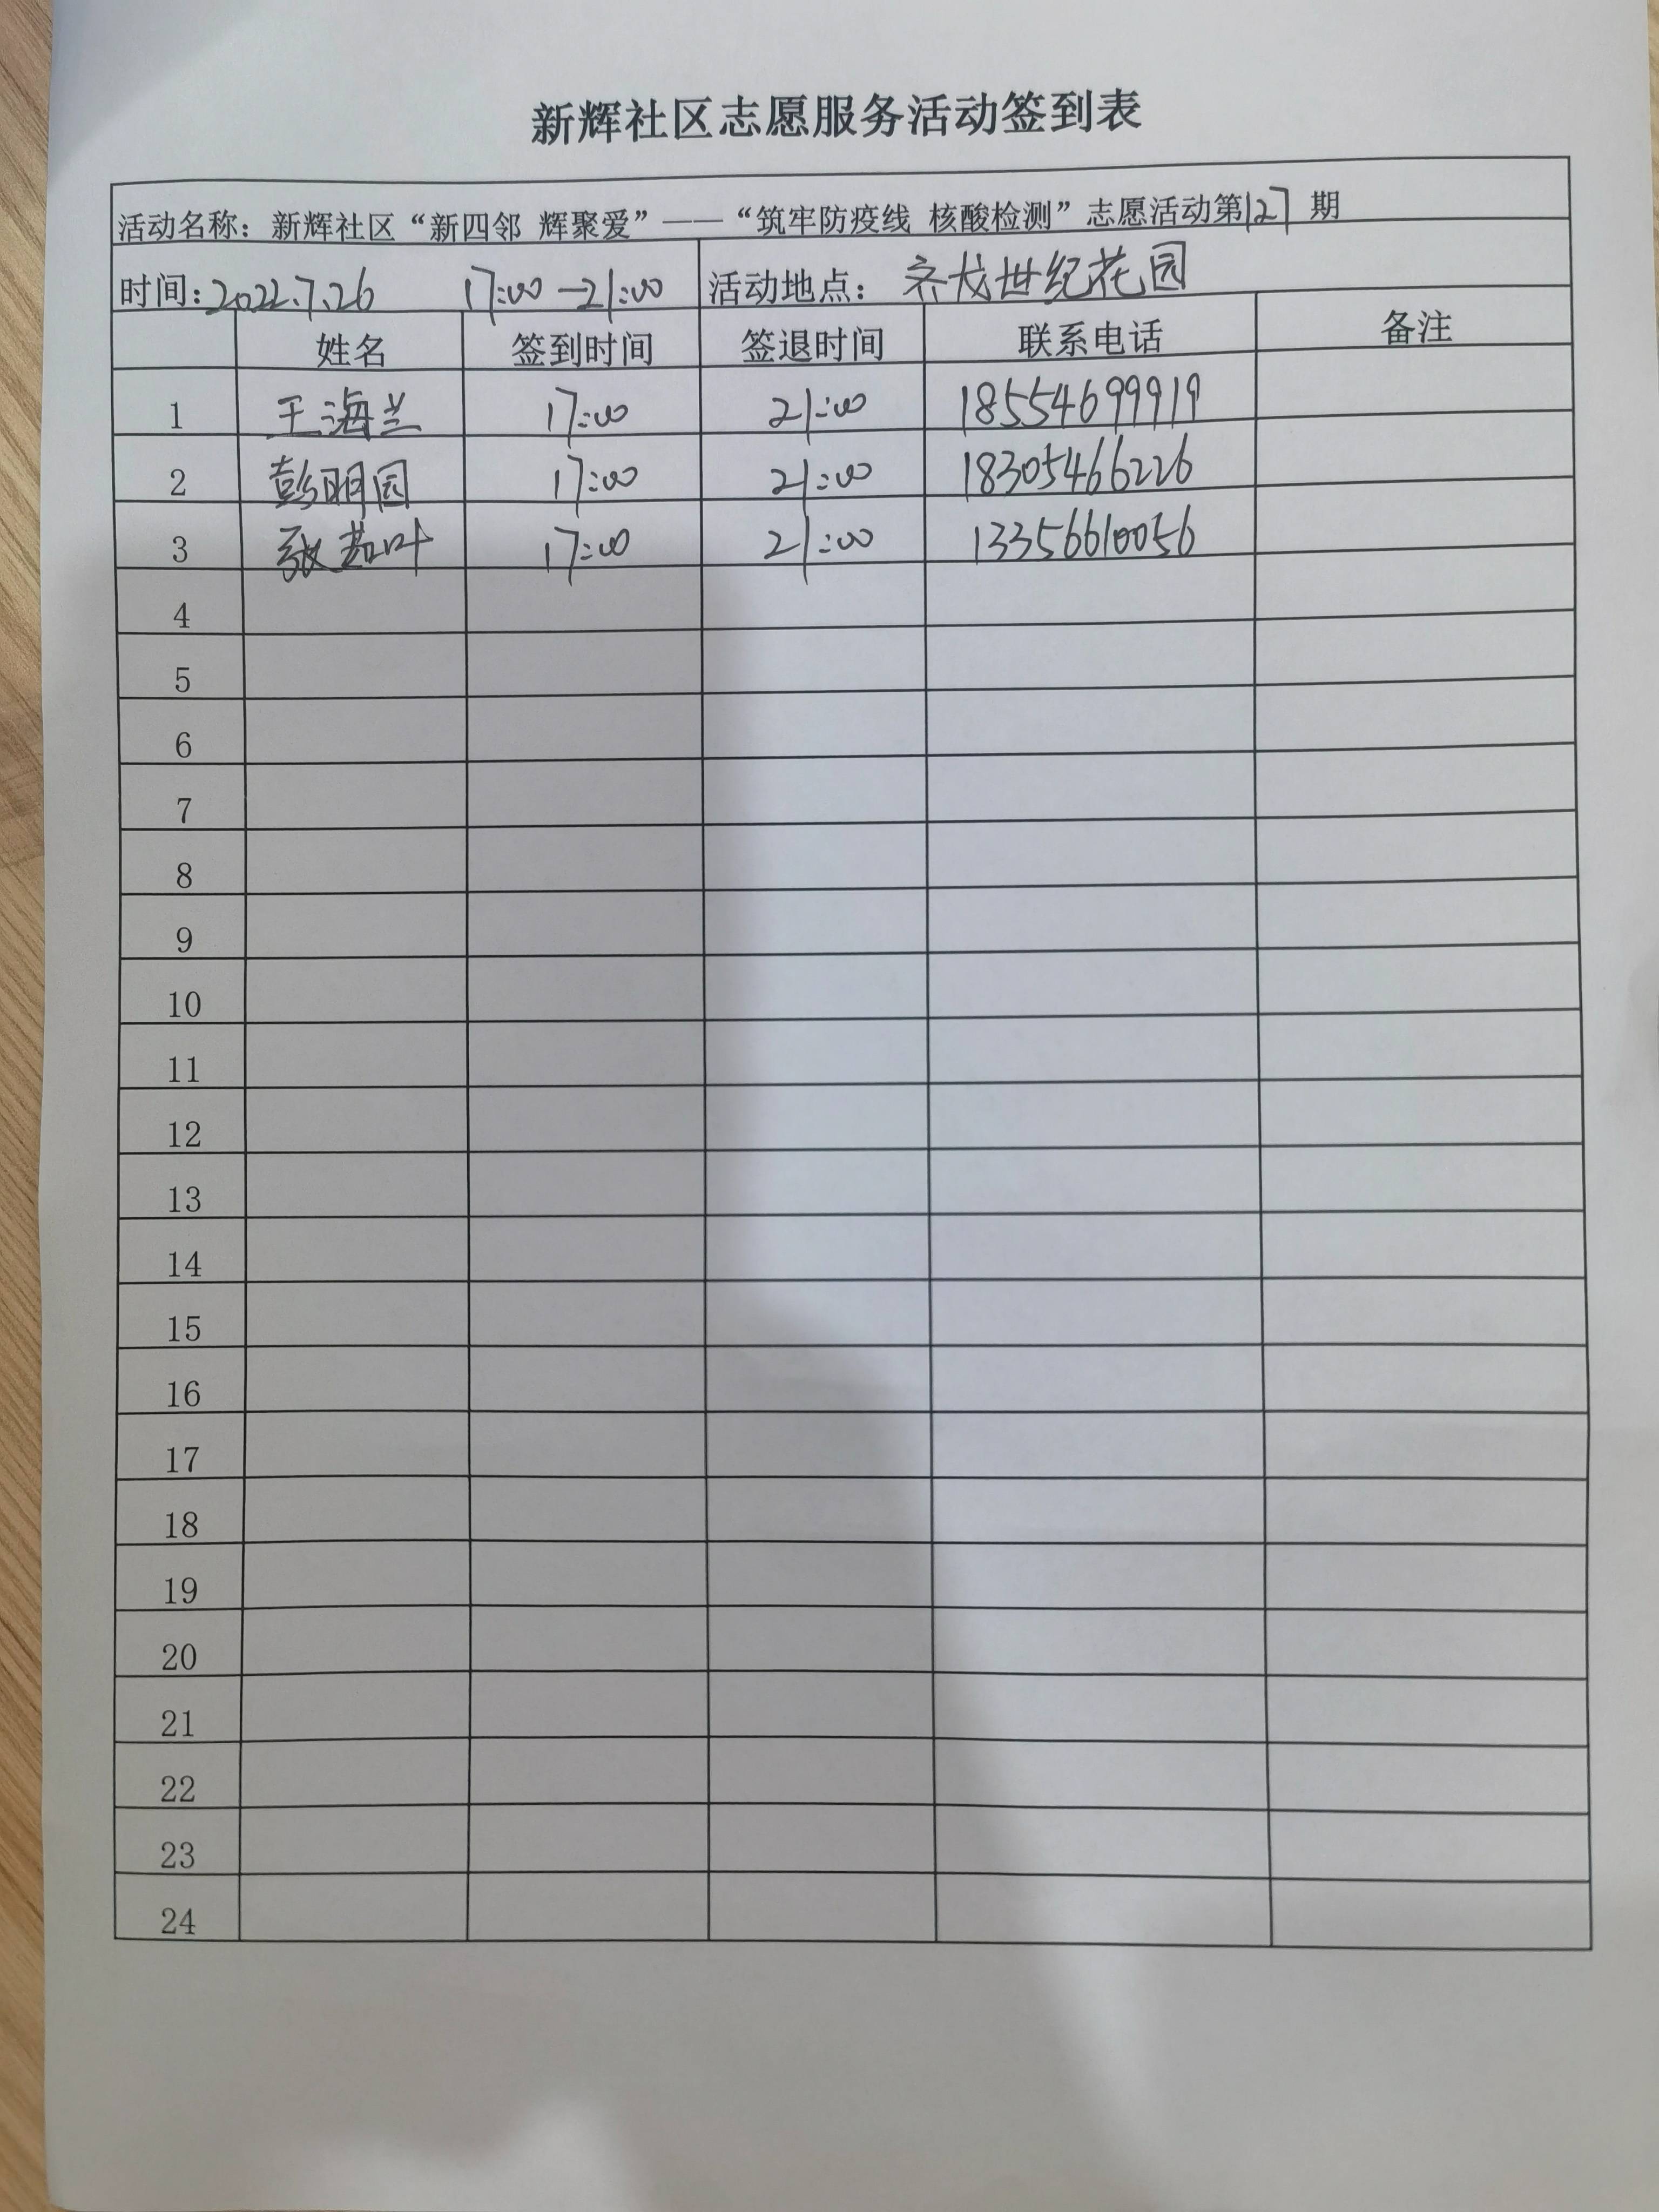 新辉社区志愿服务活动签到表
活动名称：新辉社区“新四邻 辉聚爱”——“筑牢防疫线 核酸检测”志愿活动第127期
时间：2022.7.26 17:00-21:00 活动地点：世纪花园
姓名 签到时间 签退时间 联系电话 备注
1 王海兰 17:00 21:00 18554699919
2 彭明园 17:00 21:00 18305466226
3 张茹叶 17:00 21:00 13356610056
4
5
6
7
8
9
10
11
12
13
14
15
16
17
18
19
20
21
22
23
24